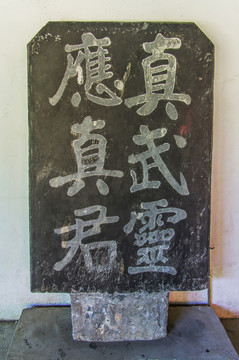 真武靈
應真君